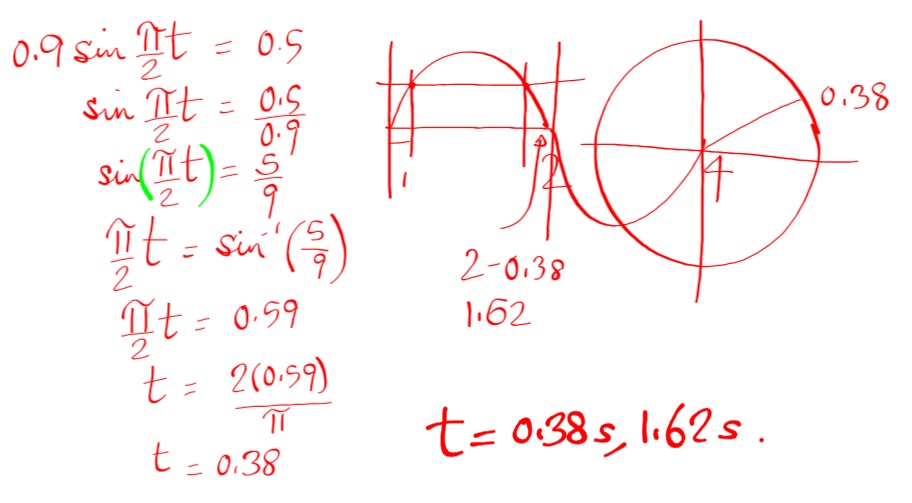 0.9 sin π/2 t = 0.5
sin π/2 t = 0.5/0.9
sin(π/2 t) = 5/9
π/2 t = sin⁻¹(5/9)
π/2 t = 0.59
t = 2(0.59)/π
t = 0.38
1
2
4
0.38
2-0.38
1.62
t = 0.38s, 1.62s.